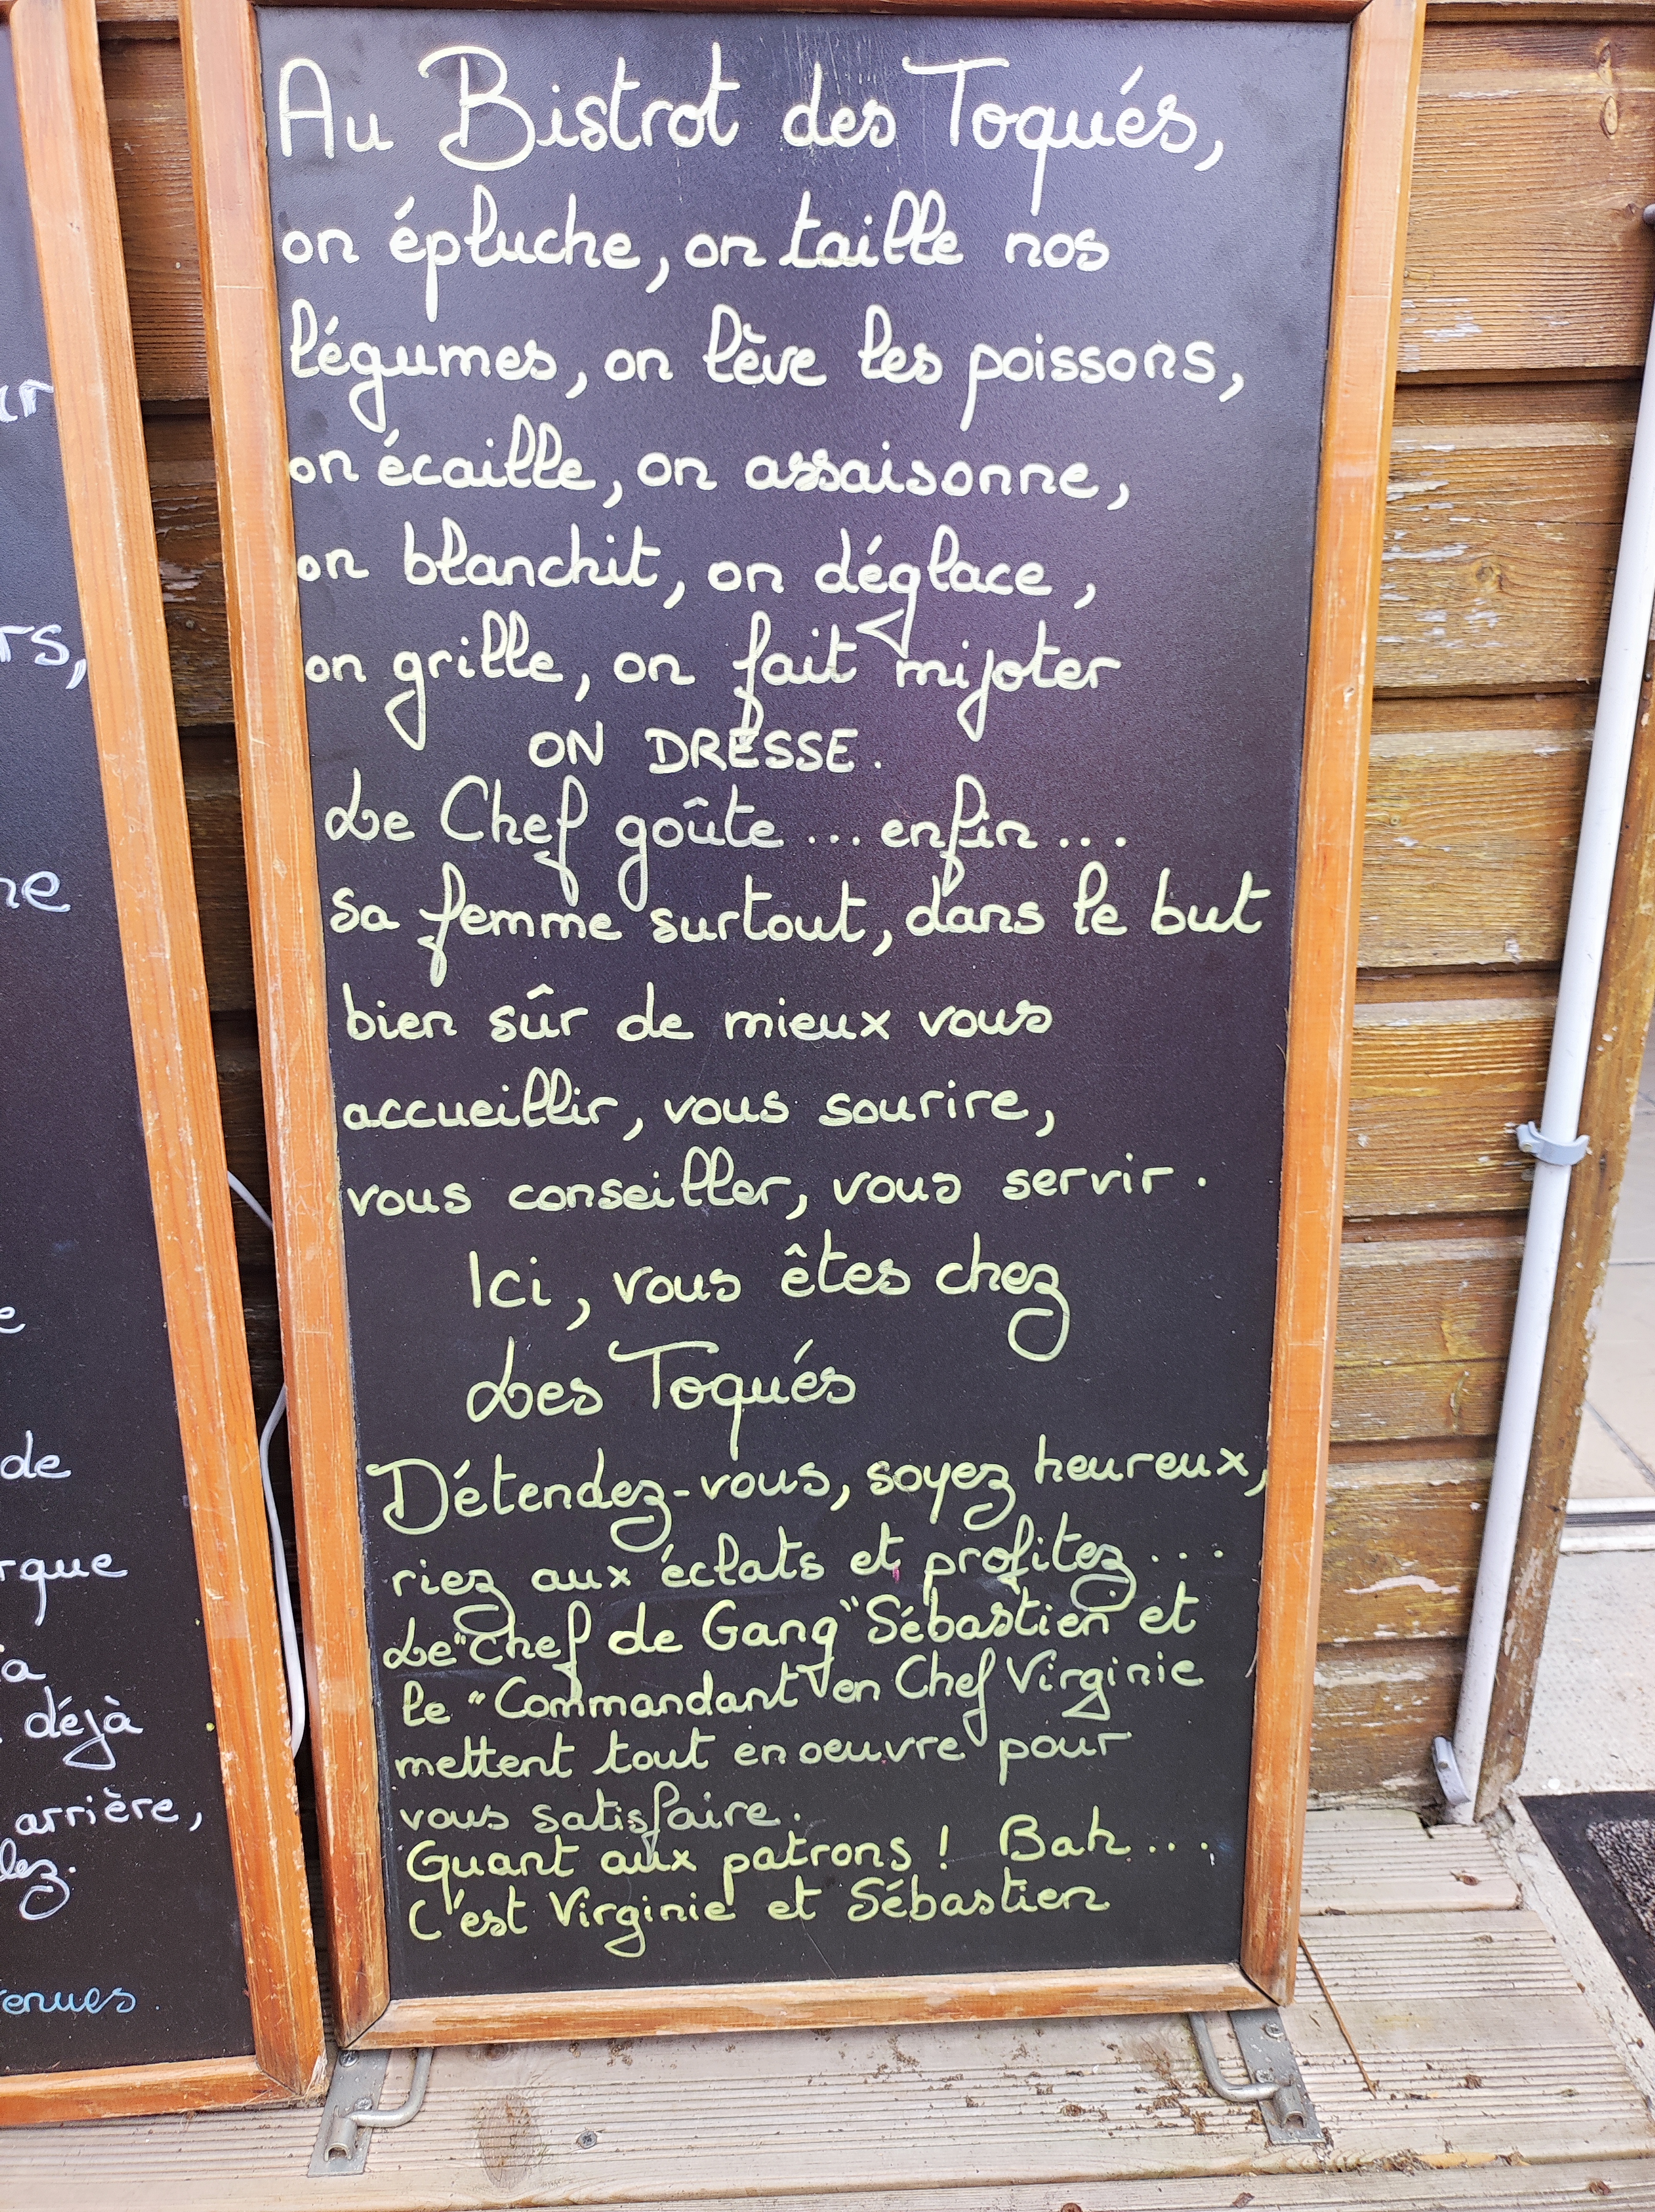 Au Bistrot des Toqués,
on épluche, on taille nos
légumes, on lève les poissons,
on écaille, on assaisonne,
on blanchit, on déglace,
on grille, on fait mijoter
ON DRESSE.
Le Chef goûte ... enfin ...
sa femme surtout, dans le but
bien sûr de mieux vous
accueillir, vous sourire,
vous conseiller, vous servir.
Ici, vous êtes chez
Les Toqués
Détendez-vous, soyez heureux,
riez aux éclats et profitez ...
Le "Chef de Gang" Sébastien et
le "Commandant" en Chef Virginie
mettent tout en oeuvre pour
vous satisfaire.
Quant aux patrons ! Bah ...
C'est Virginie et Sébastien
rs,
ne
e
de
rque
a
déjà
arrière,
lez.
enues.